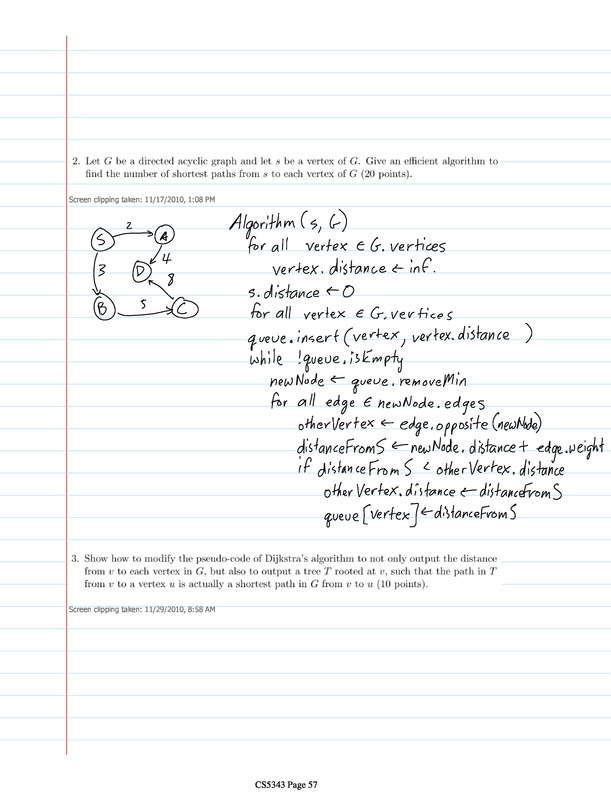 2. Let G be a directed acyclic graph and let s be a vertex of G. Give an efficient algorithm to
find the number of shortest paths from s to each vertex of G (20 points).
Screen clipping taken: 11/17/2010, 1:08 PM
S 2 A
3 D 4
8
B 5 C
Algorithm (s, G)
for all vertex ∈ G.vertices
vertex.distance ← inf.
s.distance ← 0
for all vertex ∈ G.vertices
queue.insert(vertex, vertex.distance )
while !queue.isEmpty
newNode ← queue.removeMin
for all edge ∈ newNode.edges
otherVertex ← edge.opposite(newNode)
distanceFromS ← newNode.distance + edge.weight
if distanceFromS < otherVertex.distance
otherVertex.distance ← distanceFromS
queue[vertex] ← distanceFromS
3. Show how to modify the pseudo-code of Dijkstra's algorithm to not only output the distance
from v to each vertex in G, but also to output a tree T rooted at v, such that the path in T
from v to a vertex u is actually a shortest path in G from v to u (10 points).
Screen clipping taken: 11/29/2010, 8:58 AM
CS5343 Page 57